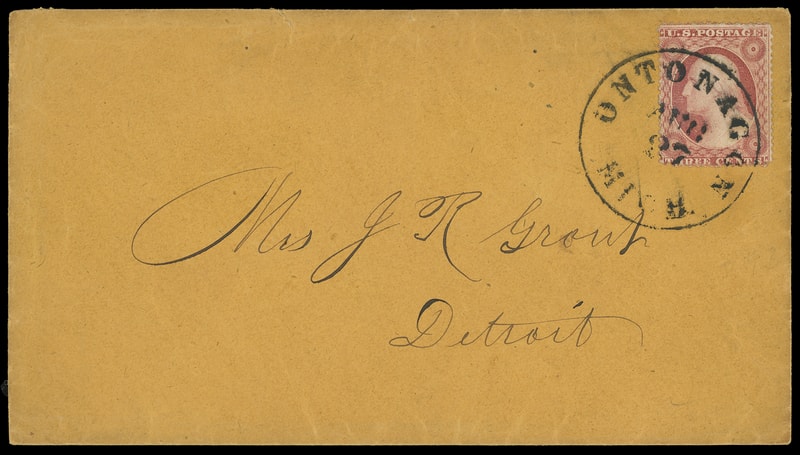 U.S. POSTAGE
THREE CENTS
ONTONAGON
AUG
27
Mrs J R Grout
Detroit